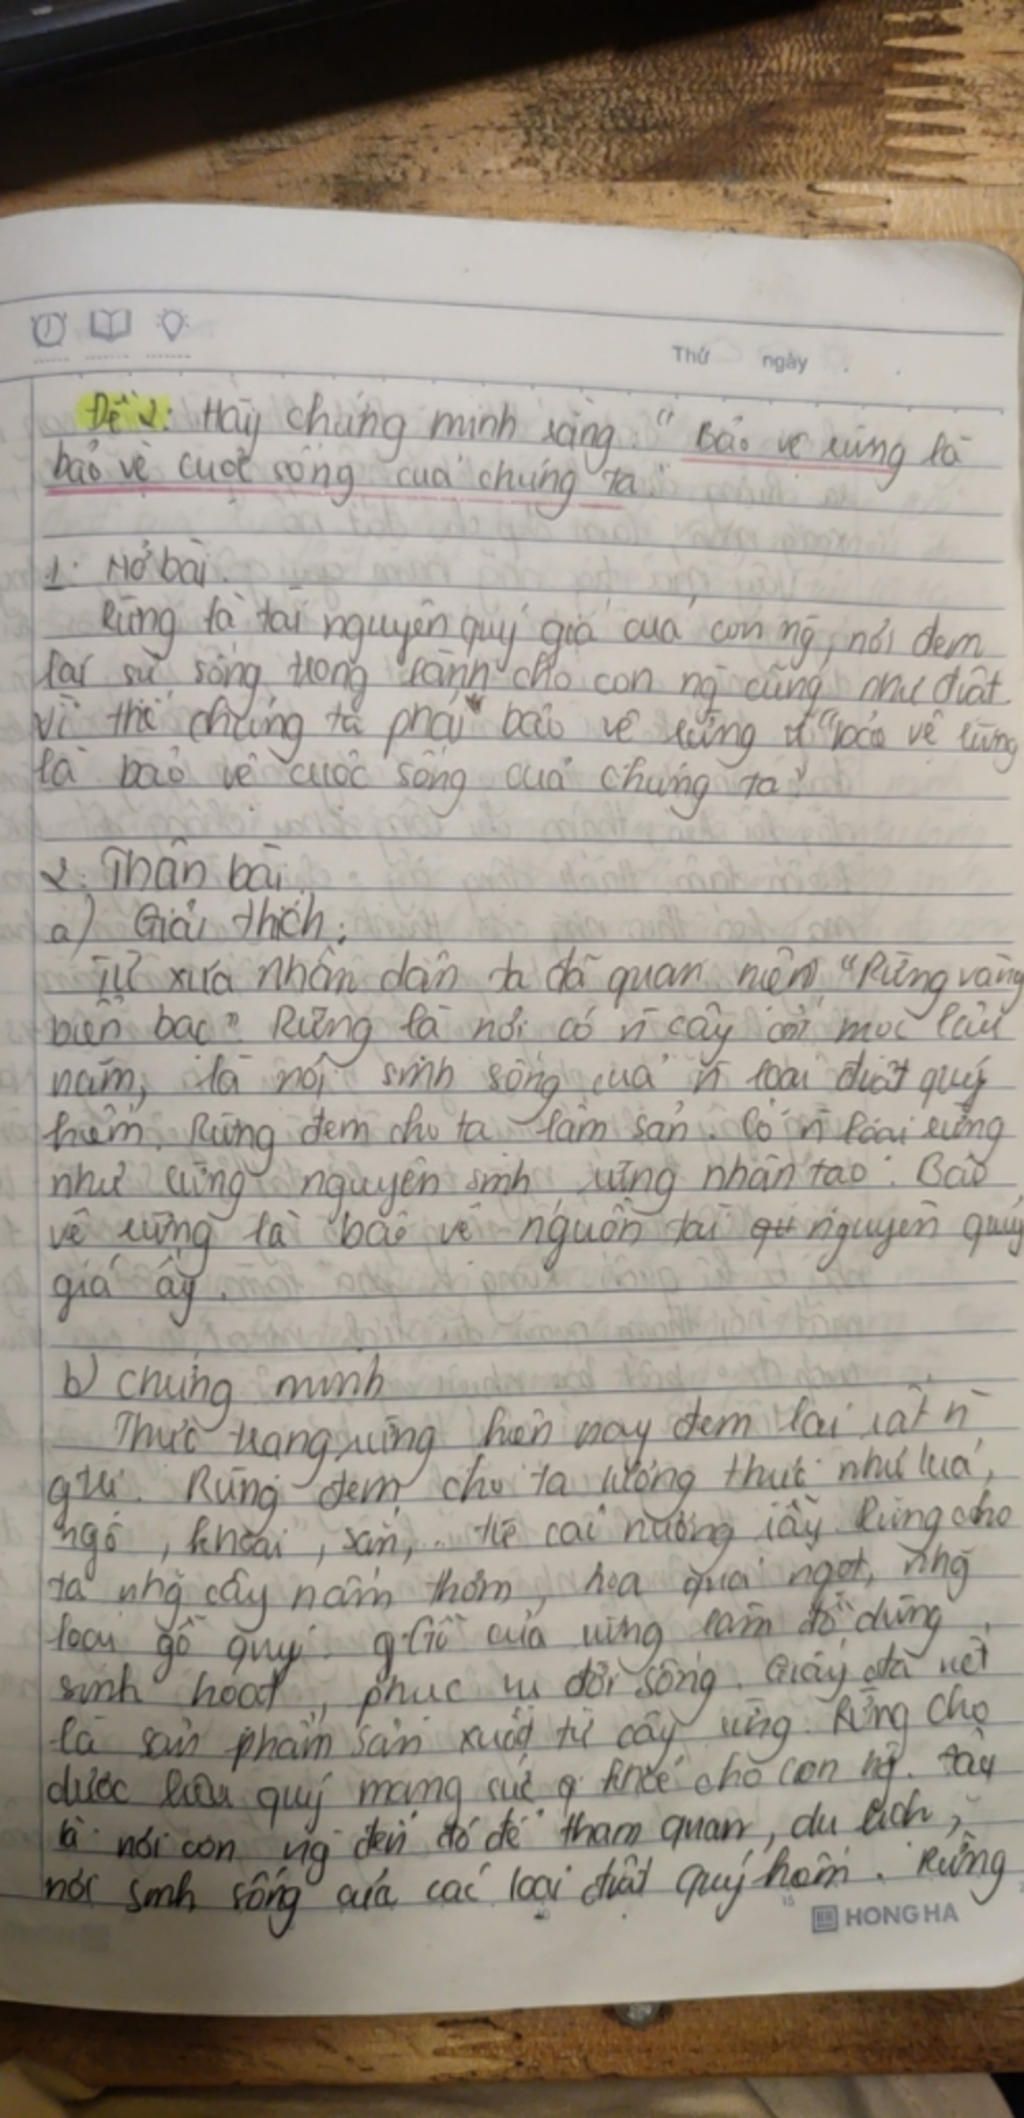 Thứ ngày
Đề 2: Hãy chứng minh rằng "Bảo vệ rừng là
bảo vệ cuộc sống của chúng ta"
1. Mở bài.
Rừng là tài nguyên quý giá của con ng̀, nơi đem
lại sự sống trong lành cho con ng̀ cũng như đvật.
Vì thế chúng ta phải bảo vệ rừng vì "bảo vệ rừng
là bảo vệ cuộc sống của chúng ta"
2. Thân bài
a) Giải thích:
Từ xưa nhân dân ta đã quan niệm "Rừng vàng
biển bạc" Rừng là nơi có n̄ cây cối mọc lâu
năm, là nơi sinh sống của n̄ loài đvật quý
hiếm. Rừng đem cho ta lâm sản. Có n̄ loại rừng
như rừng nguyên sinh rừng nhân tạo. Bảo
vệ rừng là bảo vệ nguồn tài nguyên quý
giá ấy.
b) Chứng minh
Thực trạng rừng hiện nay đem lại rất n̄
gtrị. Rừng đem cho ta lương thực như lúa,
ngô, khoai, sắn,.. từ cái nương rẫy. Rừng cho
ta nhg̃ cây nấm thơm, hoa quả ngọt, nhg̃
loại gỗ quý. Gỗ của rừng làm đồ dùng
sinh hoạt, phục vụ đời sống. Giấy ta viết
là sản phẩm sản xuất từ cây rừng. Rừng cho
dược liệu quý mang sức khoẻ cho con ng̀. Đây
là nơi con ng̀ đến đó để tham quan, du lịch,
nơi sinh sống của các loài đvật quý hiếm. Rừng
HONG HA